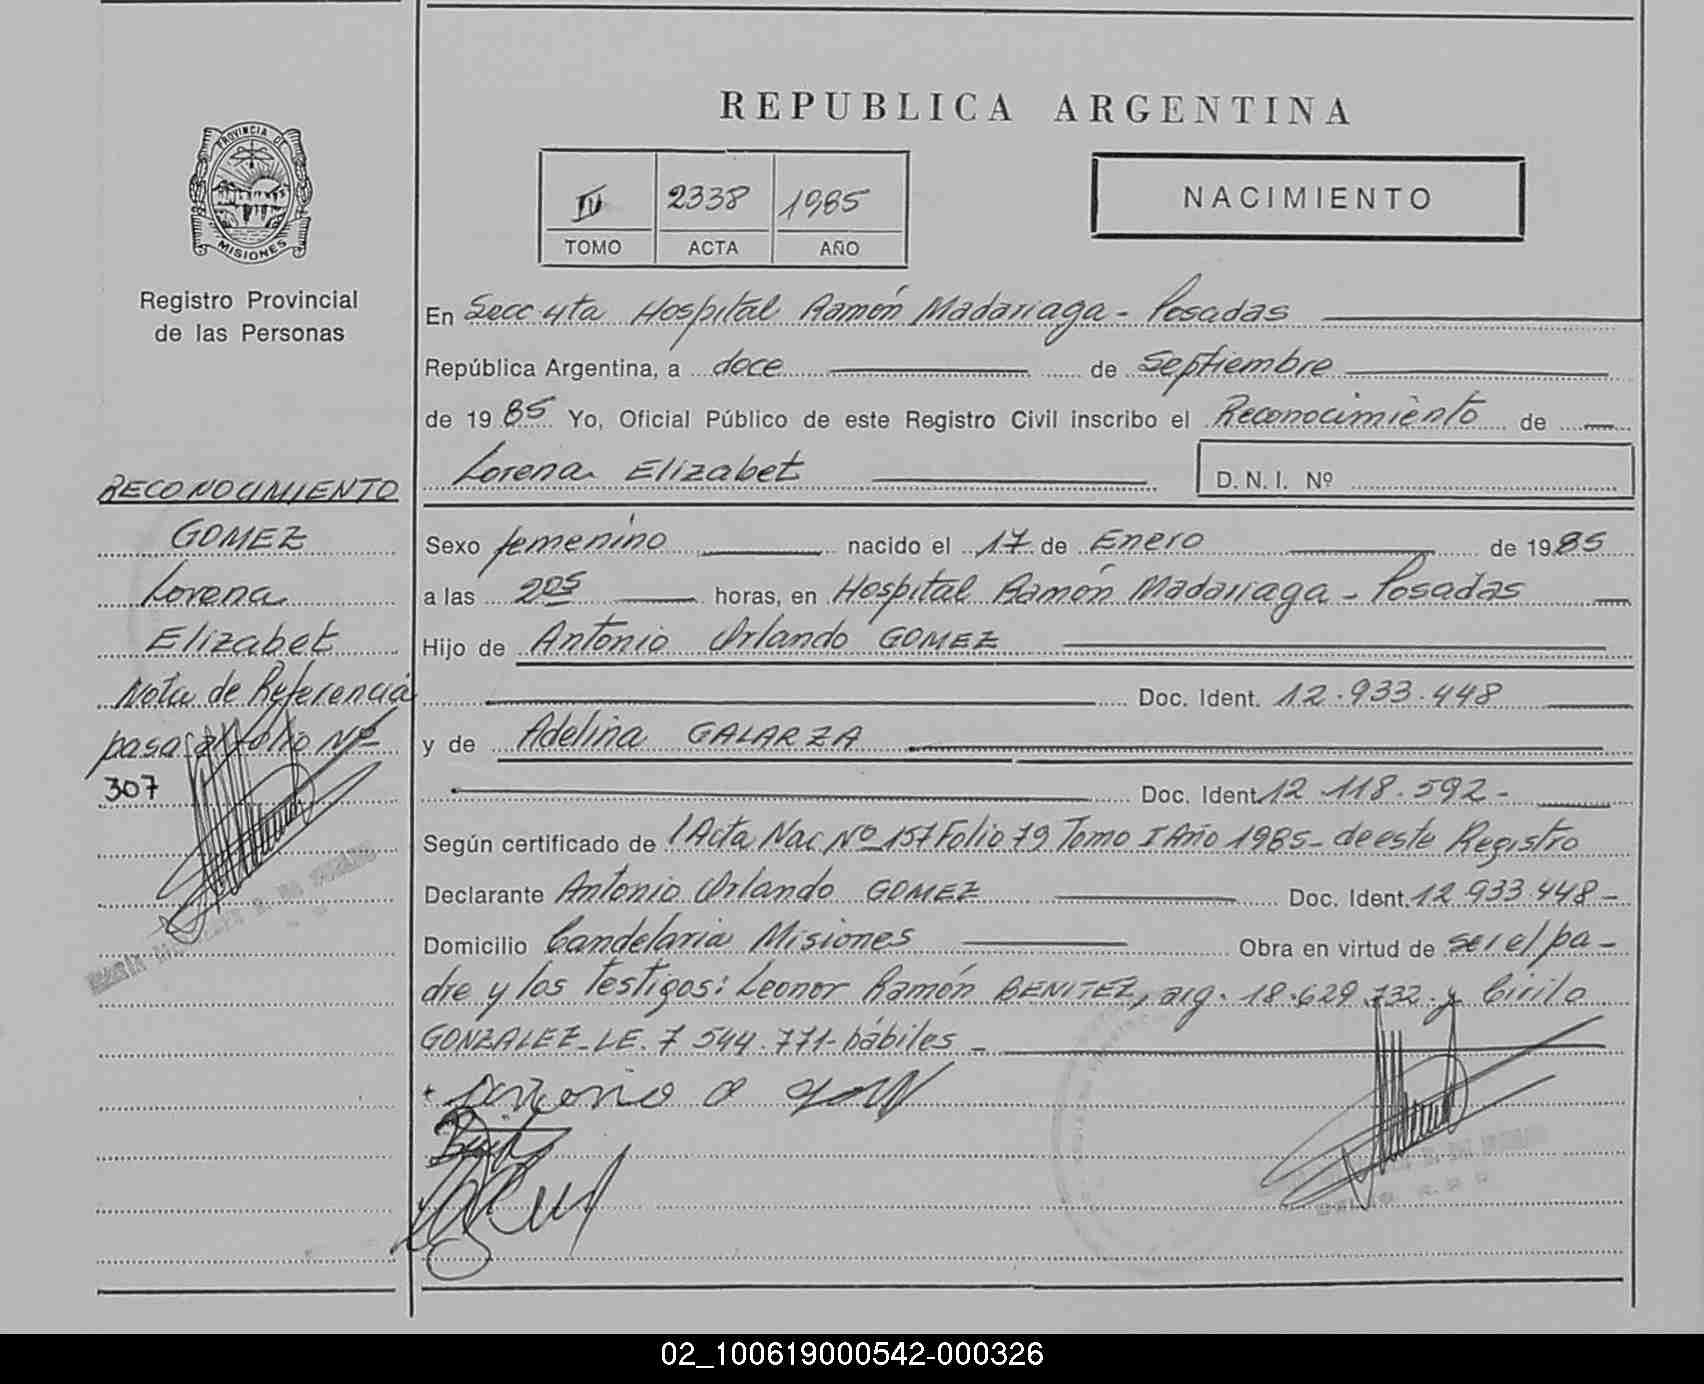 REPUBLICA ARGENTINA
PROVINCIA DE
MISIONES
Registro Provincial
de las Personas
IV 2338 1985
TOMO ACTA AÑO
NACIMIENTO
En Secc 4ta Hospital Ramón Madariaga - Posadas
República Argentina, a doce de Septiembre
de 1985 Yo, Oficial Público de este Registro Civil inscribo el Reconocimiento de
Lorena Elizabet D.N.I. Nº
RECONOCIMIENTO
GOMEZ
Lorena
Elizabet
Nota de Referencia
pasa al folio Nº
307
Sexo femenino nacido el 17 de Enero de 1985
a las 2 05 horas, en Hospital Ramón Madariaga - Posadas
Hijo de Antonio Orlando GOMEZ
Doc. Ident. 12.933.448
y de Adelina GALARZA
Doc. Ident. 12.118.592 -
Según certificado de Acta Nac Nº 157 Folio 79 Tomo I Año 1985 - de este Registro
Declarante Antonio Orlando GOMEZ Doc. Ident. 12.933.448 -
Domicilio Candelaria Misiones Obra en virtud de ser el pa-
dre y los testigos: Leonor Ramón BENITEZ, arg. 18.629.732 y Cirilo
GONZALEZ - LE. 7 544.771 - hábiles -
02_100619000542-000326